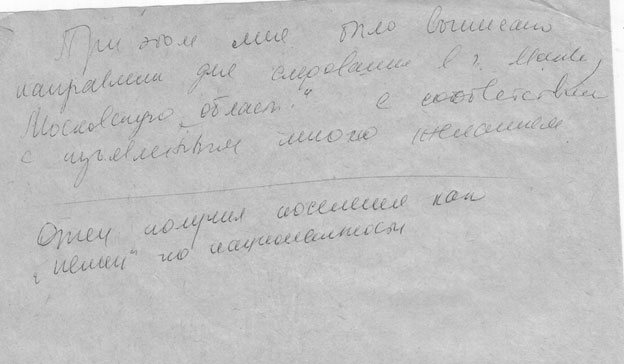 При этом мне было выписано
направлени для следования в г.
Московскую область." с соответствии
с изъявленным мною желанием.
Отец получил поселение как
„немец" по национальности